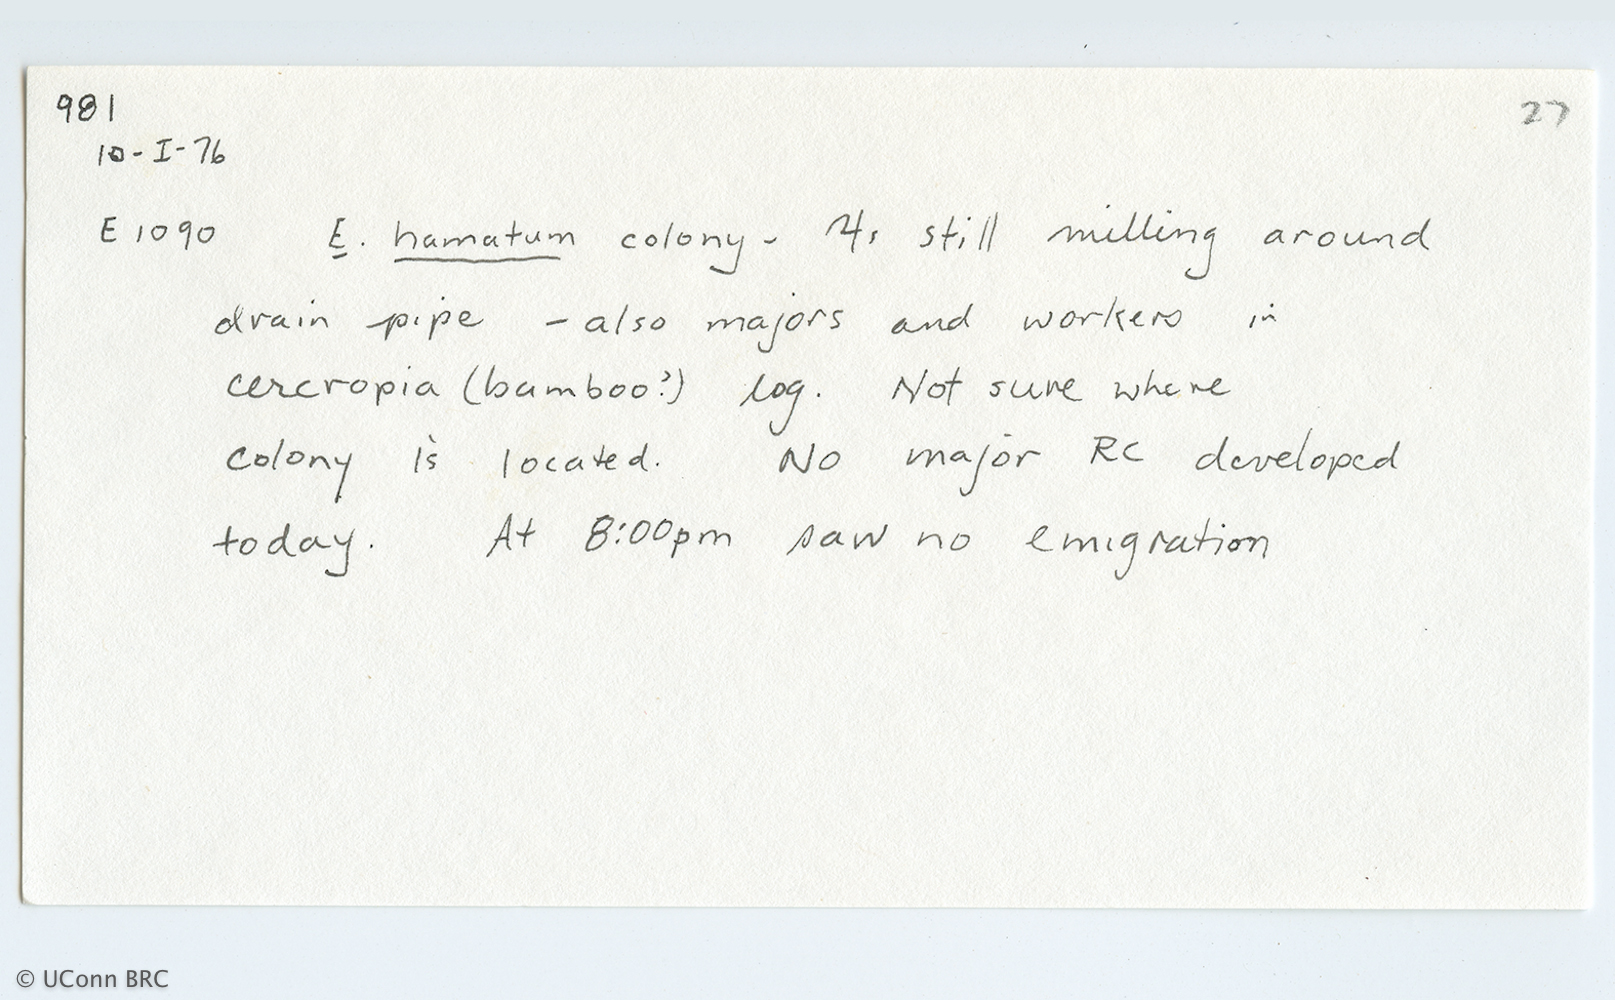 981
27
10-I-76
E1090 E. hamatum colony - still milling around
drain pipe - also majors and workers in
cercropia (bamboo?) log. Not sure where
colony is located. No major RC developed
today. At 8:00pm saw no emigration
© UConn BRC